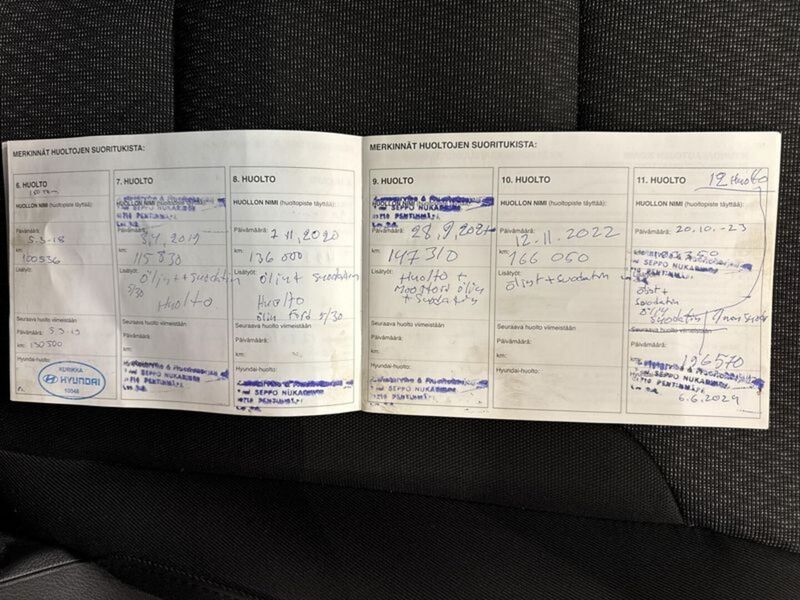 MERKINNÄT HUOLTOJEN SUORITUKISTA:
6. HUOLTO
HUOLLON NIMI (huoltopiste täyttää):
Päivämäärä:
5.3-18
km:
100536
Lisätyöt:
Seuraava huolto viimeistään
Päivämäärä: 5.3-19
km: 130500
Hyundai-huolto:
KURIKKA
HYUNDAI
10548
7. HUOLTO
HUOLLON NIMI (huoltopiste täyttää):
SEPPO NUKARINEN
PENTINMÄKI
Päivämäärä:
2019
km:
115830
Lisätyöt:
Öljyt + suodatin
5/30
Huolto
Seuraava huolto viimeistään
Päivämäärä:
km:
Hyundai-huolto:
SEPPO NUKARINEN
PENTINMÄKI
8. HUOLTO
HUOLLON NIMI (huoltopiste täyttää):
Päivämäärä: 2.11.2020
km:
136 000
Lisätyöt:
öljyt suodatin
Huolto
öljy Ford 5/30
Seuraava huolto viimeistään
Päivämäärä:
km:
Hyundai-huolto:
SEPPO NUKARINEN
PENTINMÄKI
MERKINNÄT HUOLTOJEN SUORITUKISTA:
9. HUOLTO
HUOLLON NIMI (huoltopiste täyttää):
SEPPO NUKARINEN
PENTINMÄKI
Päivämäärä: 28.9.2021
km:
147310
Lisätyöt:
Huolto +
Moottori öljyn
+ Suodatin
Seuraava huolto viimeistään
Päivämäärä:
km:
Hyundai-huolto:
SEPPO NUKARINEN
PENTINMÄKI
10. HUOLTO
HUOLLON NIMI (huoltopiste täyttää):
Päivämäärä:
12.11.2022
km:
166 050
Lisätyöt:
öljyt + suodatin
Seuraava huolto viimeistään
Päivämäärä:
km:
Hyundai-huolto:
11. HUOLTO
12 Huolto
HUOLLON NIMI (huoltopiste täyttää):
Päivämäärä: 20.10.-23
SEPPO NUKARINEN
PENTINMÄKI
öljyt +
suodatin
Seuraava huolto viimeistään
Päivämäärä:
km:
196570
SEPPO NUKARINEN
PENTINMÄKI
6.6.2024